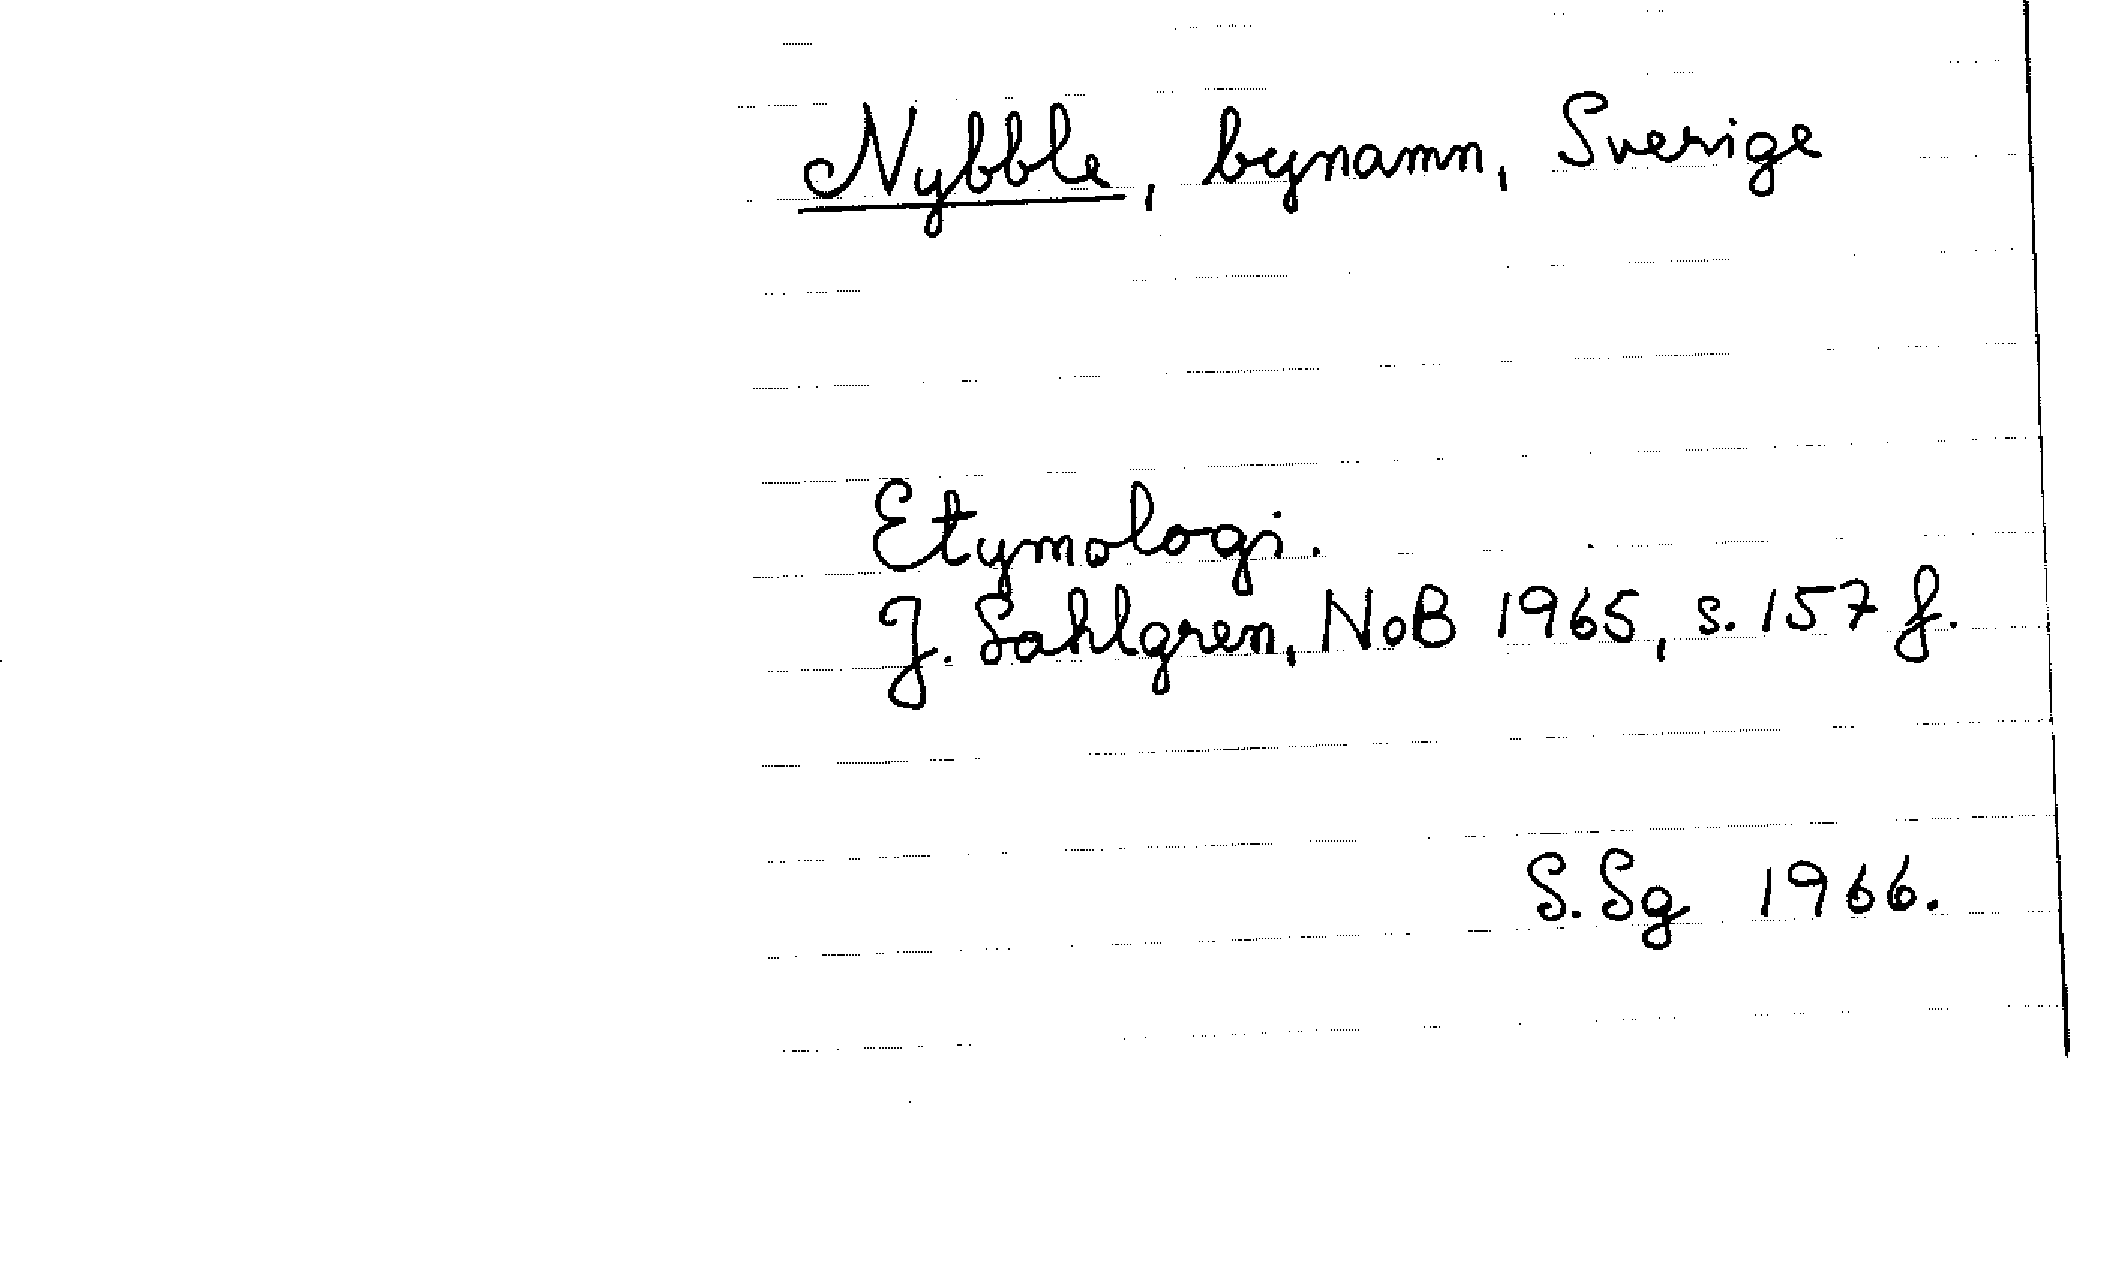 Nybble, bynamn, Sverige
Etymologi.
J. Sahlgren, NoB 1965, s. 157 f.
S. Sg 1966.